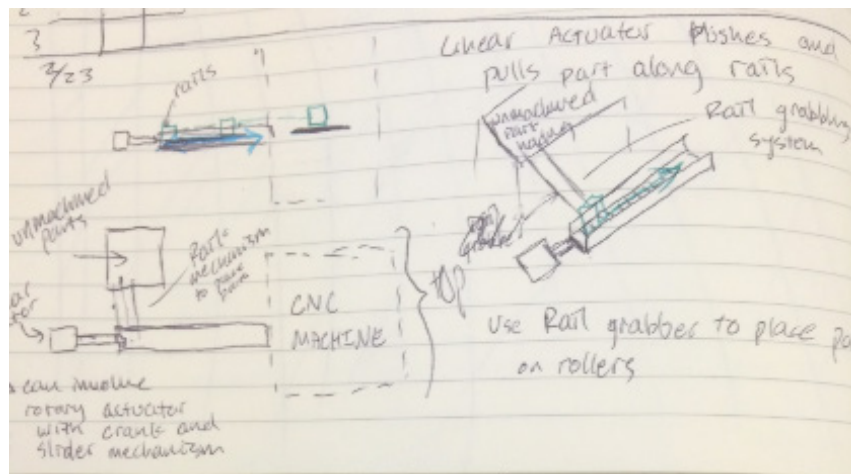 3
2/23
rails
Linear Actuator Pushes and
pulls part along rails
unmachined
part
Rail grabbing
system
unmachined
parts
Rail
mechanism
to place
CNC
MACHINE
top
grabber
Use Rail grabber to place
on rollers
can involve
rotary actuator
with crank and
slider mechanism